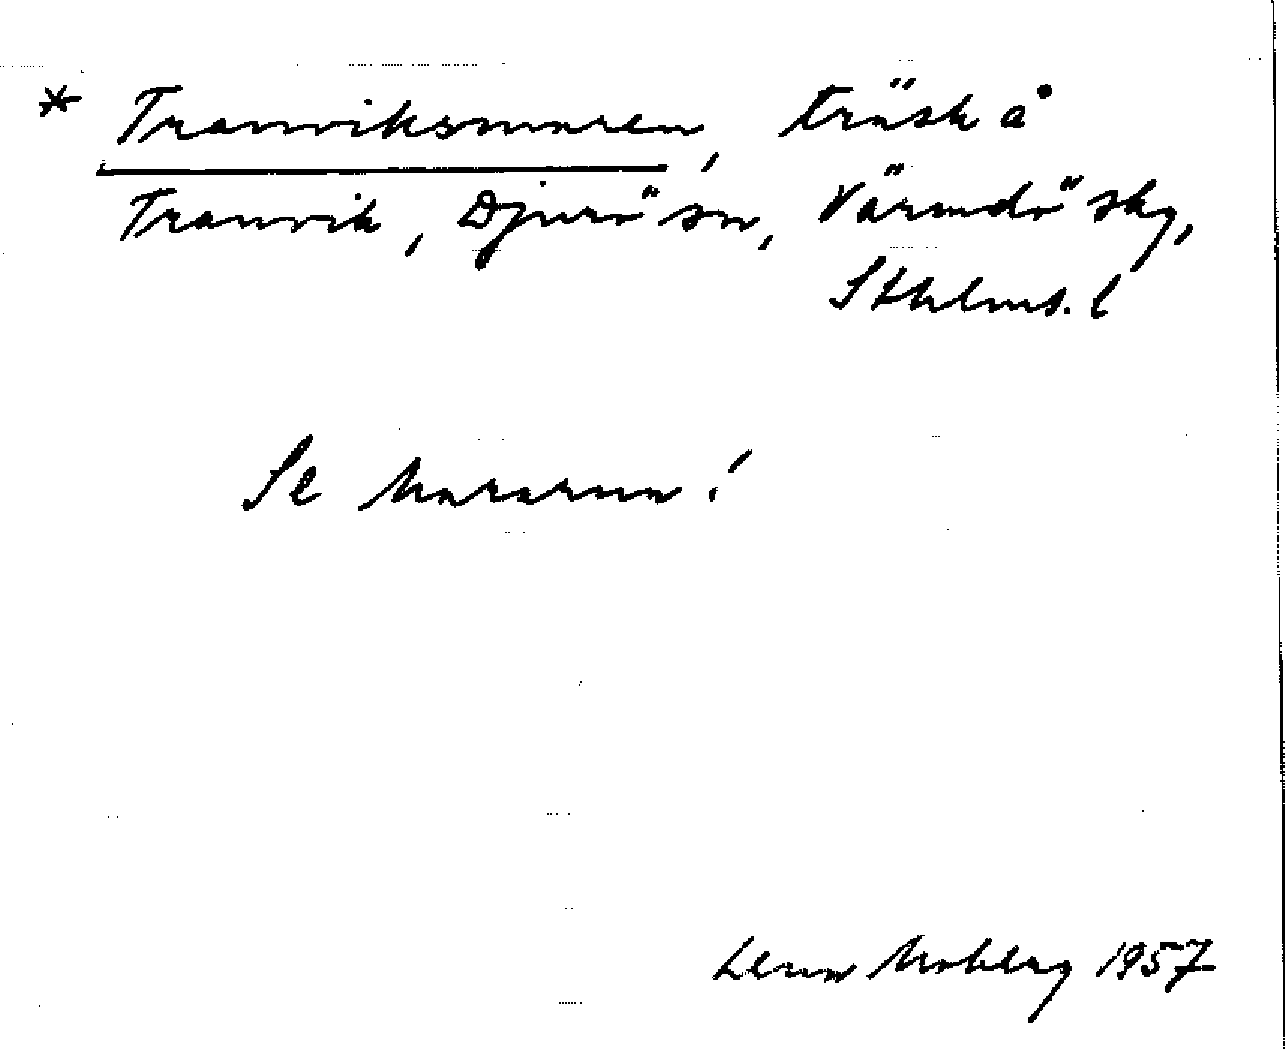 * Tranviksmaren, träsk å
Tranvik, Djurö sn, Värmdö skg,
Sthlms. l
Se Mararna!
Lena Moberg 1957